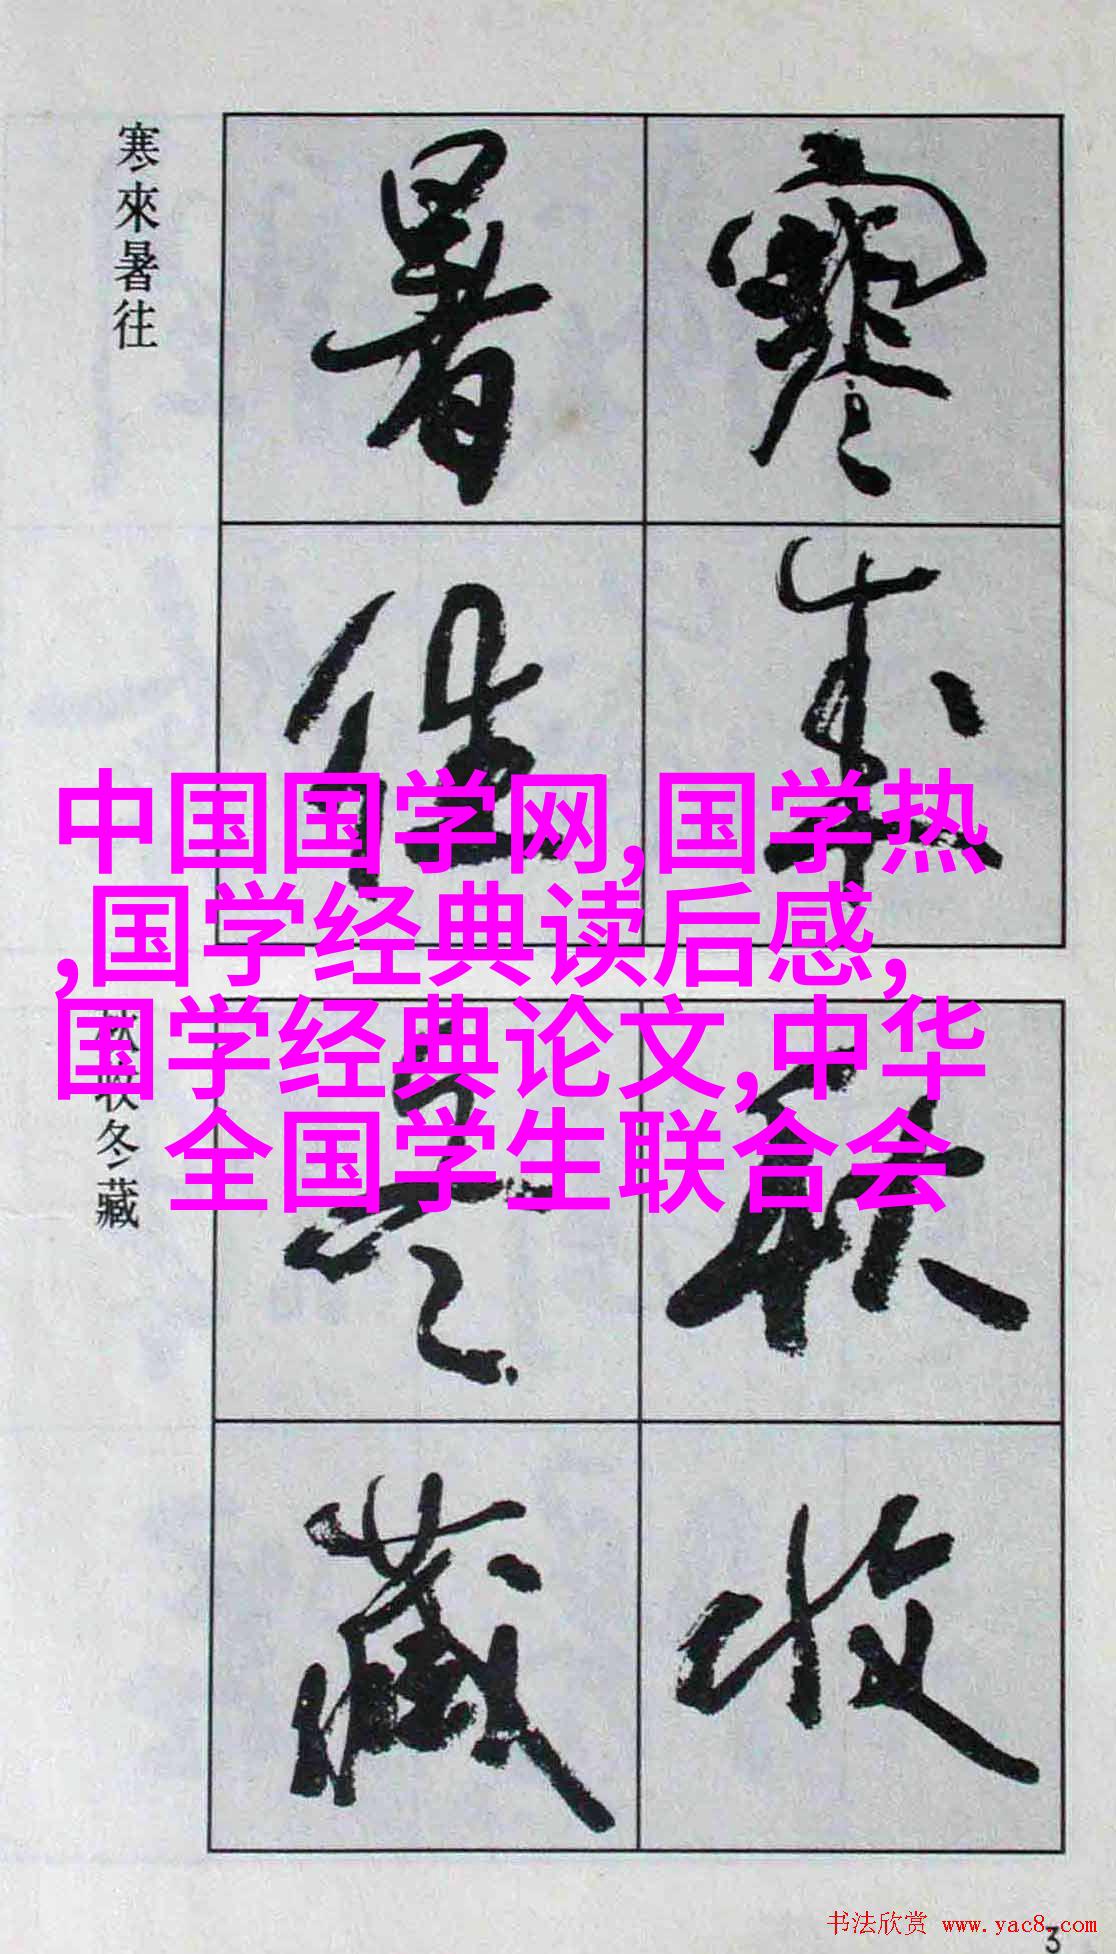 寒來暑往
寒
來
暑
往
中国国学网,国学热
,国学经典读后感,
国学经典论文,中华
全国学生联合会
冬藏
秋
收
藏
书法欣赏 www.yac8.com
3